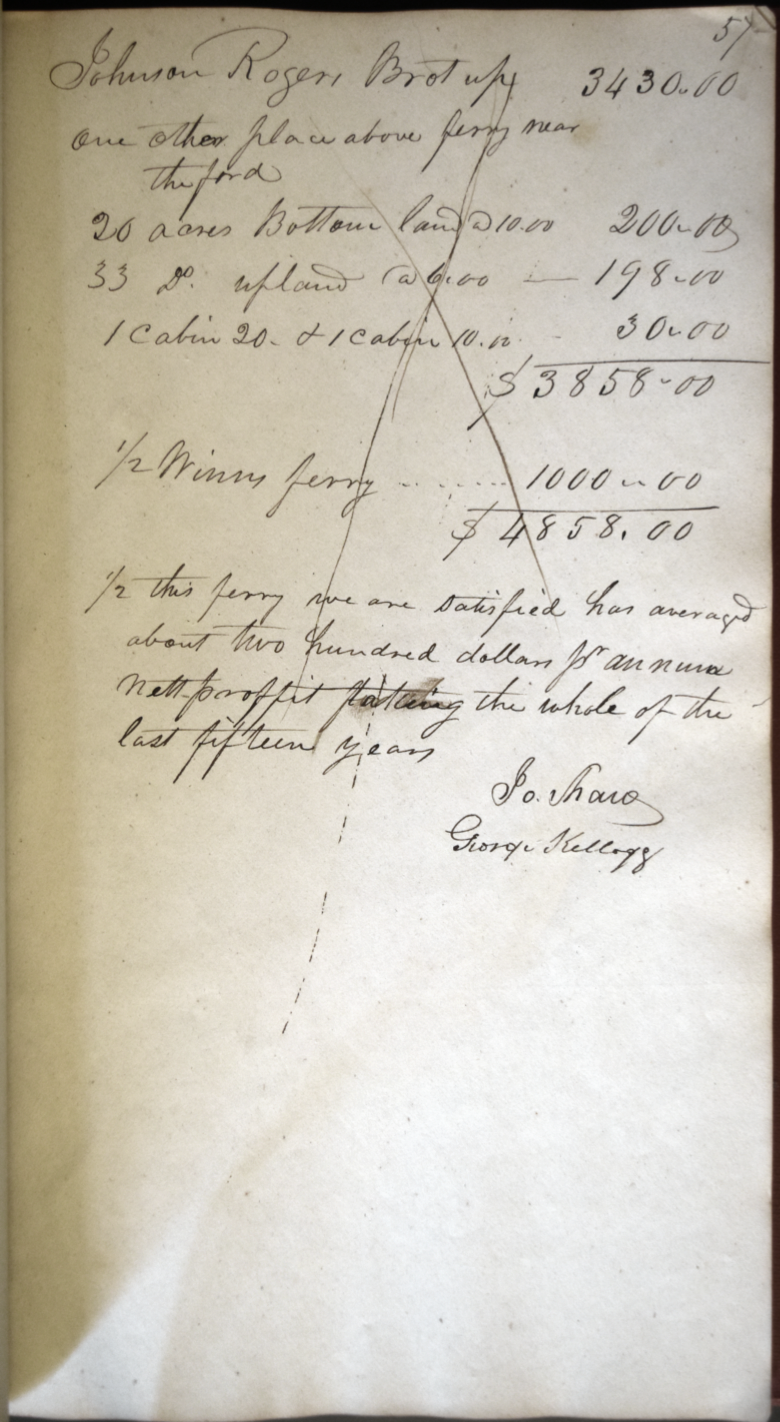 57
Johnson Rogers Brot up 3430.00
One other place above ferry near
the ford
20 acres Bottom land @ 10.00 200.00
33 Do. upland @ 6.00 — 198.00
1 Cabin 20. & 1 cabin 10.00 - 30.00
$3858.00
1/2 Winns ferry ........ 1000.00
$4858.00
1/2 this ferry we are satisfied has averaged
about two hundred dollars pr annum
nett proffit taking the whole of the
last fifteen years
Jo.
George Kellogg